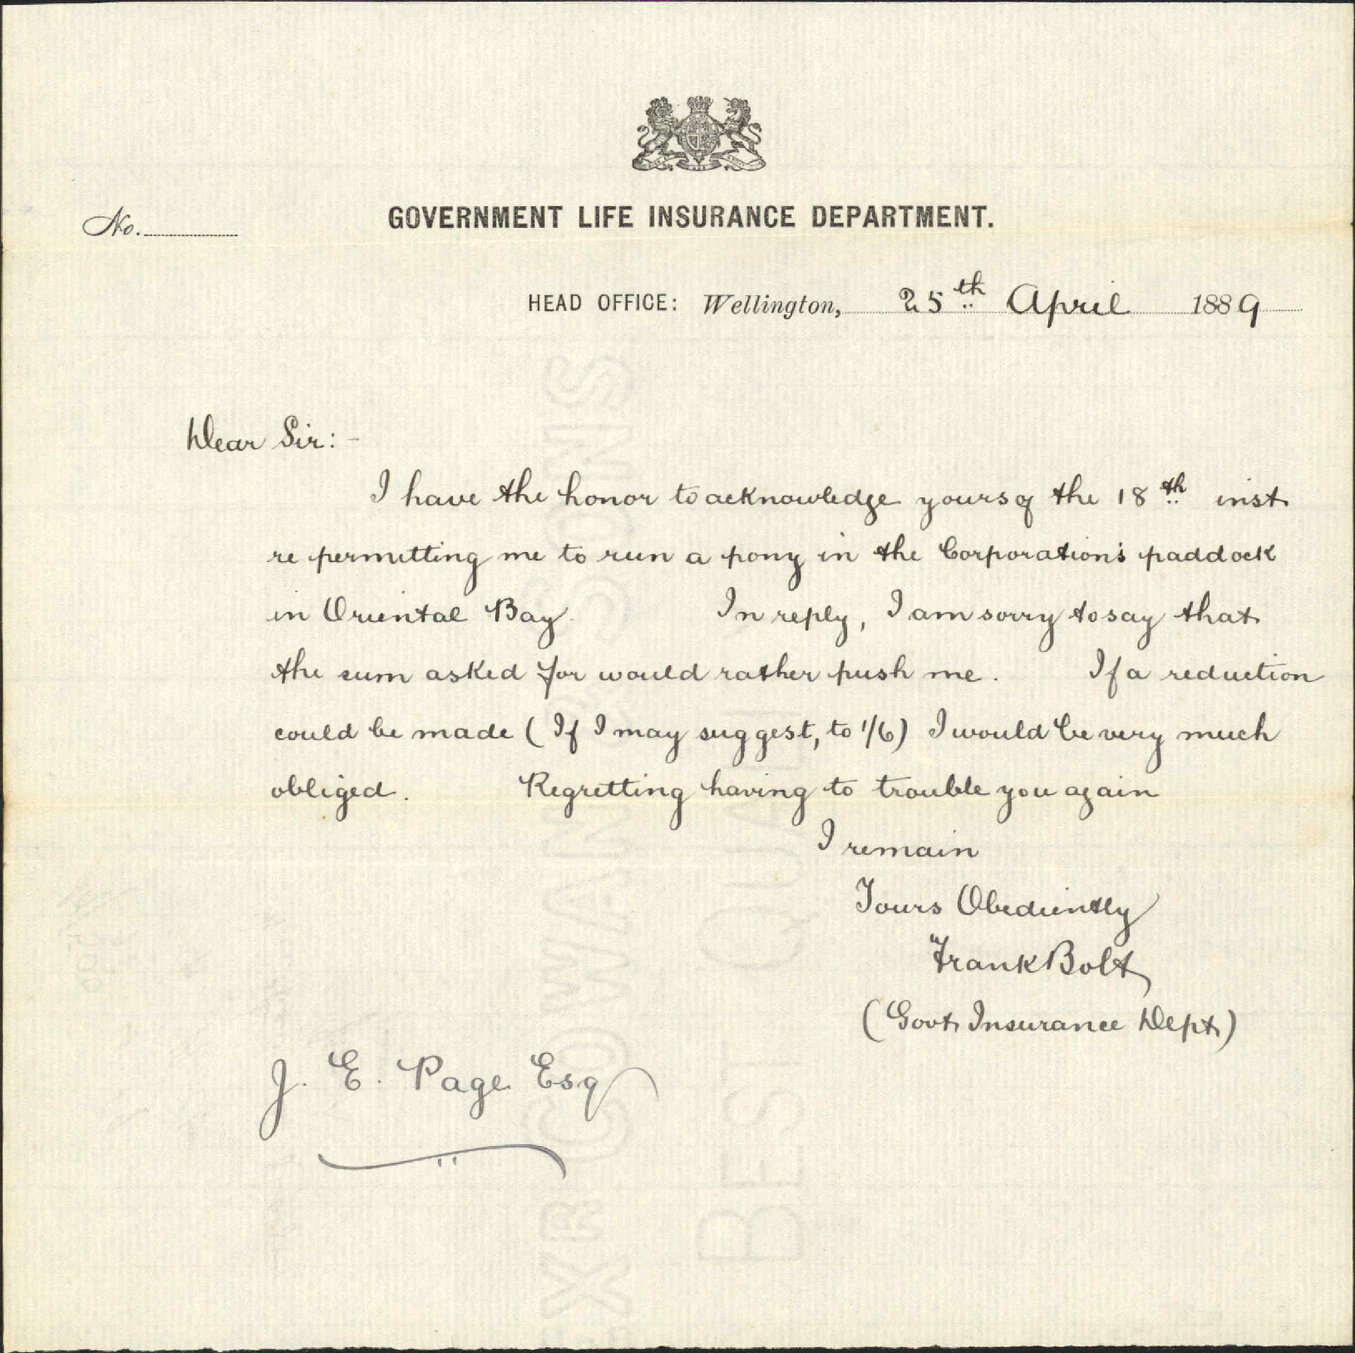 No.
GOVERNMENT LIFE INSURANCE DEPARTMENT.
HEAD OFFICE: Wellington, 25th April 1889
Dear Sir:-
I have the honor to acknowledge yours of the 18th inst
re permitting me to run a pony in the Corporation's paddock
in Oriental Bay. In reply, I am sorry to say that
the sum asked for would rather push me. If a reduction
could be made (If I may suggest, to 1/6) I would be very much
obliged. Regretting having to trouble you again
I remain
Yours Obediently
Frank Bolt
(Govt Insurance Dept)
J. E. Page Esq
COWAN & SONS
BEST QUALITY